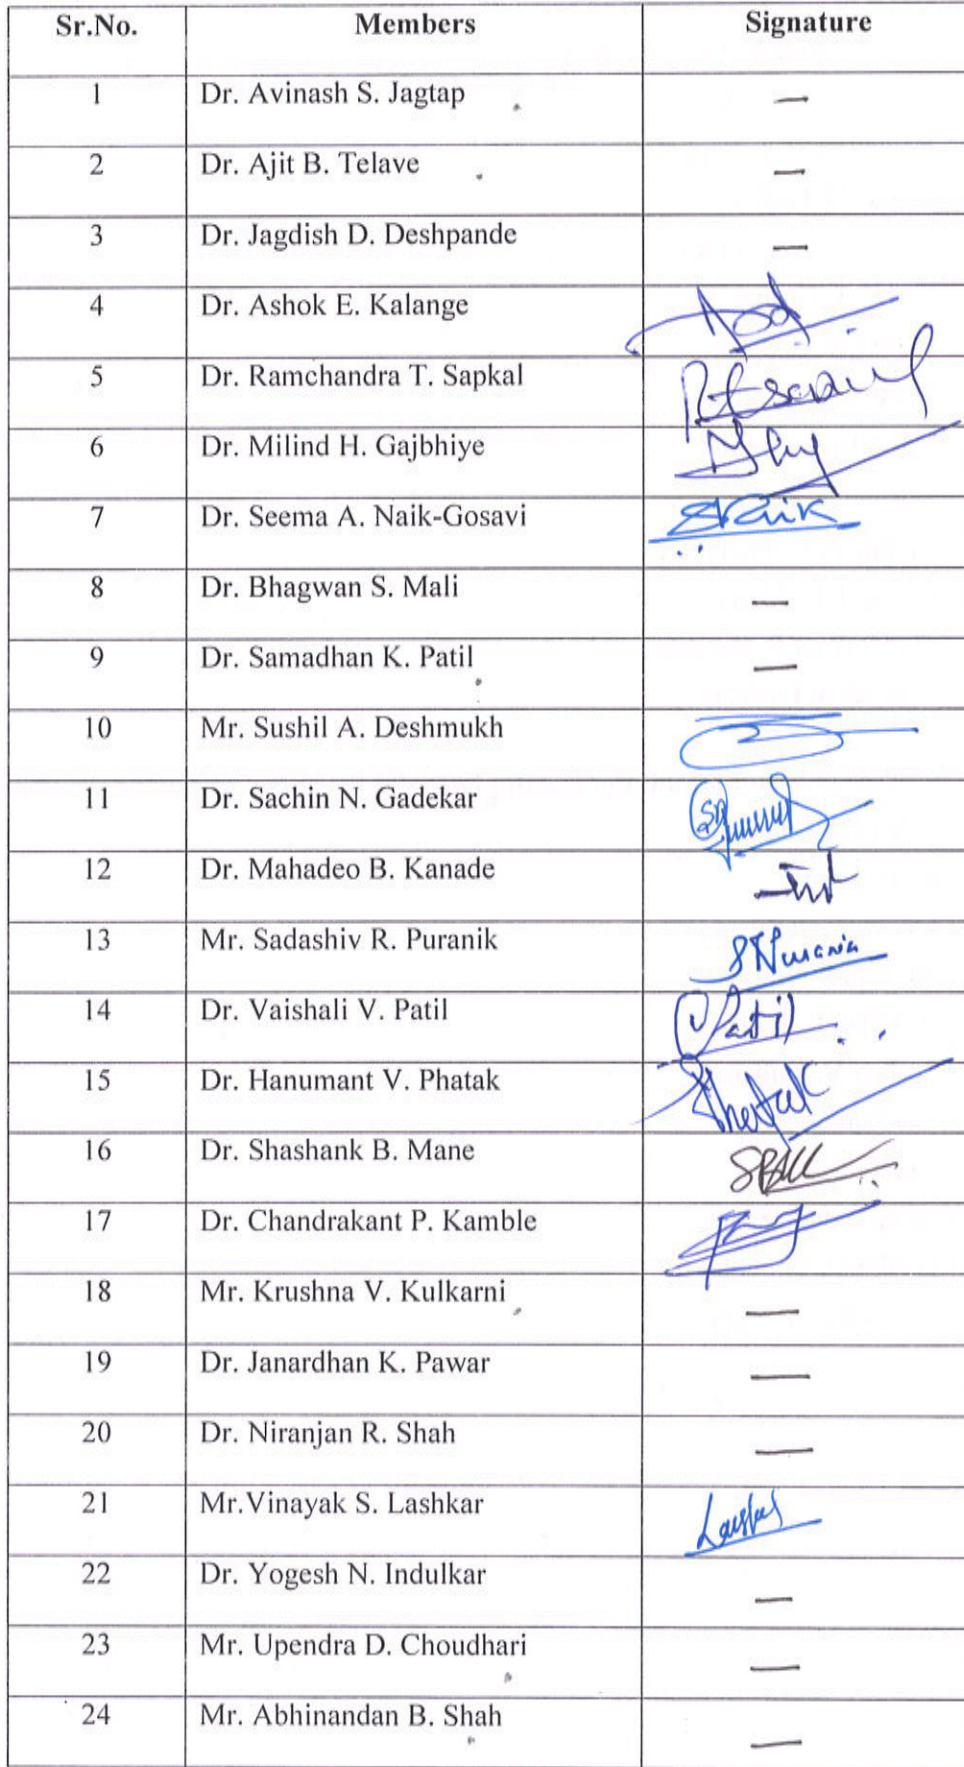 Sr.No. Members Signature
1 Dr. Avinash S. Jagtap —
2 Dr. Ajit B. Telave —
3 Dr. Jagdish D. Deshpande —
4 Dr. Ashok E. Kalange
5 Dr. Ramchandra T. Sapkal
6 Dr. Milind H. Gajbhiye
7 Dr. Seema A. Naik-Gosavi SNaik
8 Dr. Bhagwan S. Mali —
9 Dr. Samadhan K. Patil —
10 Mr. Sushil A. Deshmukh
11 Dr. Sachin N. Gadekar
12 Dr. Mahadeo B. Kanade
13 Mr. Sadashiv R. Puranik
14 Dr. Vaishali V. Patil VPatil
15 Dr. Hanumant V. Phatak Phatak
16 Dr. Shashank B. Mane
17 Dr. Chandrakant P. Kamble
18 Mr. Krushna V. Kulkarni —
19 Dr. Janardhan K. Pawar —
20 Dr. Niranjan R. Shah —
21 Mr.Vinayak S. Lashkar
22 Dr. Yogesh N. Indulkar —
23 Mr. Upendra D. Choudhari —
24 Mr. Abhinandan B. Shah —